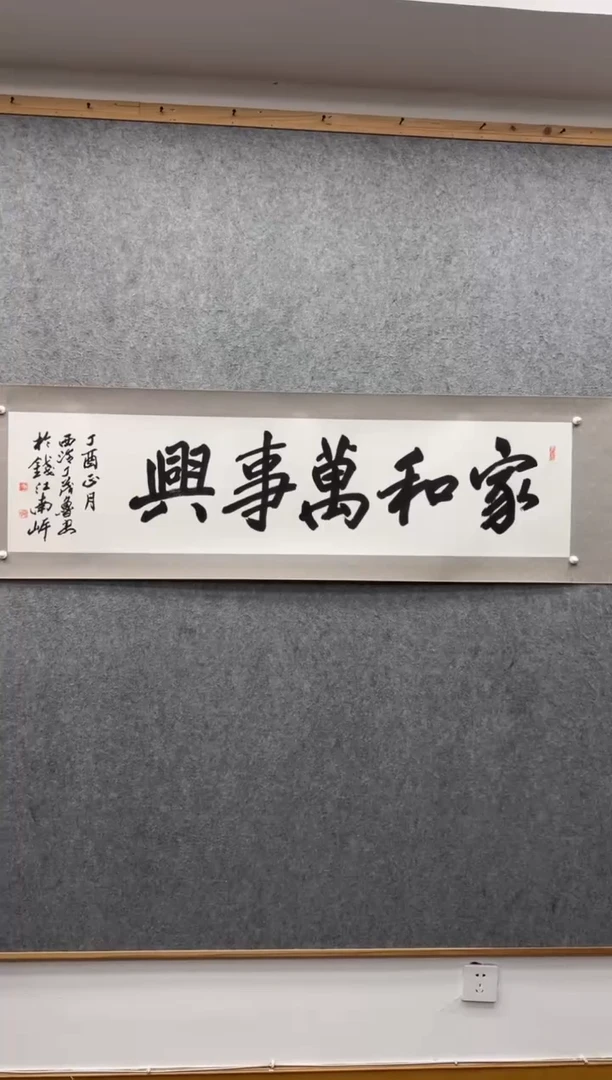 家和萬事興
丁酉正月
西泠丁茂魯書
於錢江南岸